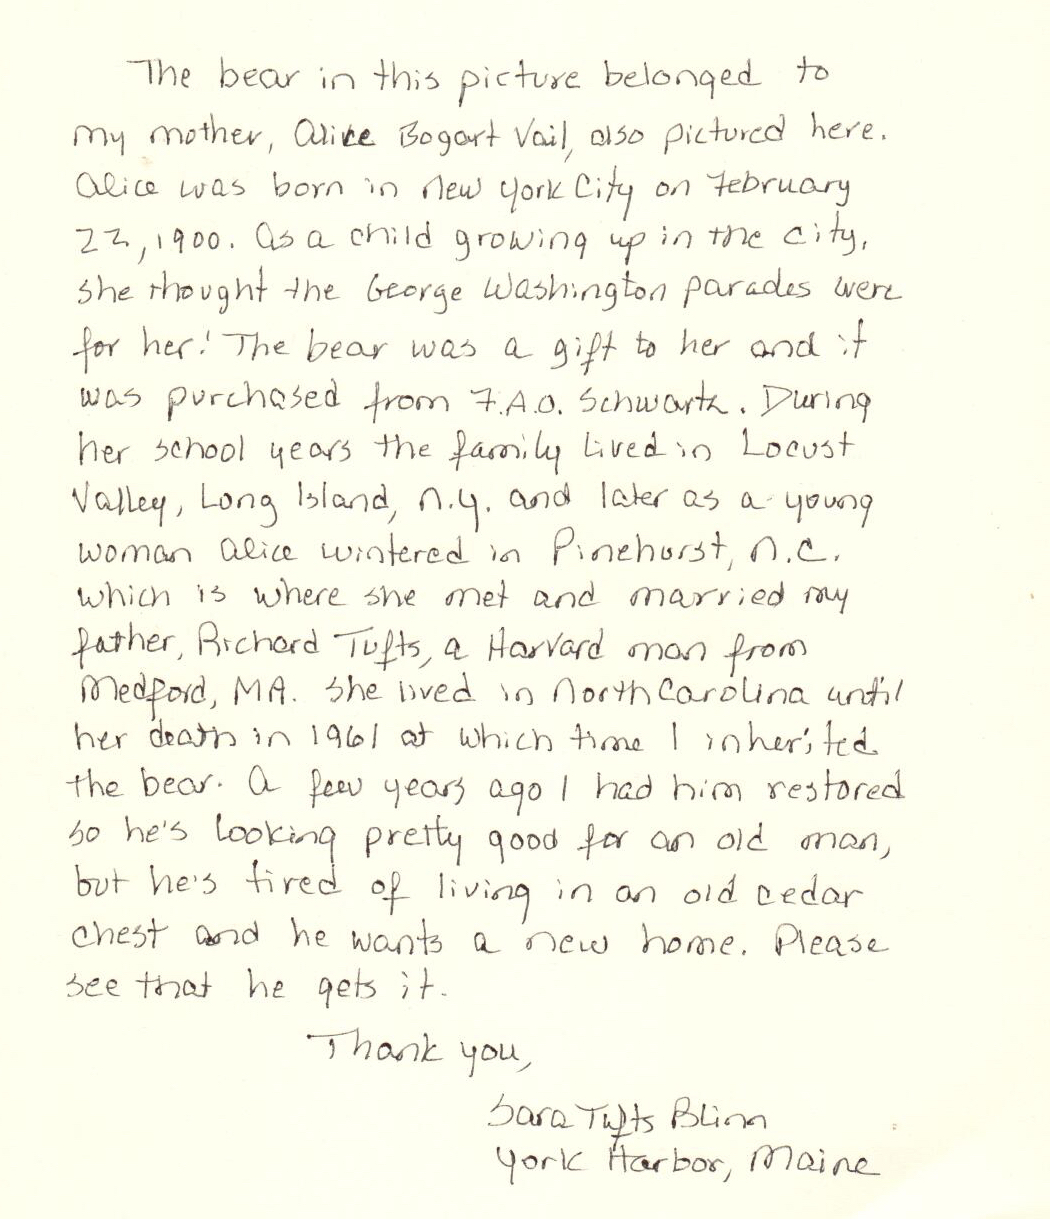 The bear in this picture belonged to
my mother, Alice Bogart Vail, also pictured here.
Alice was born in New York City on February
22, 1900. As a child growing up in the city,
she thought the George Washington parades were
for her! The bear was a gift to her and it
was purchased from F.A.O. Schwartz. During
her school years the family lived in Locust
Valley, Long Island, N.Y. and later as a young
woman Alice wintered in Pinehurst, N.C.
which is where she met and married my
father, Richard Tufts, a Harvard man from
Medford, MA. She lived in North Carolina until
her death in 1961 at which time I inherited
the bear. A few years ago I had him restored
so he's looking pretty good for an old man,
but he's tired of living in an old cedar
chest and he wants a new home. Please
see that he gets it.
Thank you,
Sara Tufts Blinn
York Harbor, Maine